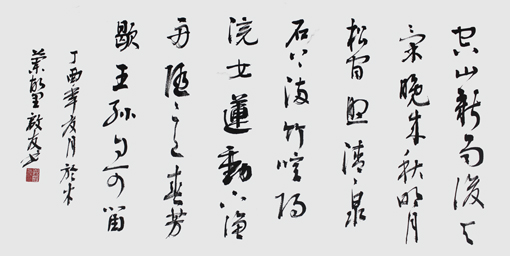 空山新雨後天
氣晚來秋明月
松間照清泉
石上流竹喧歸
浣女蓮動下漁
舟隨意春芳
歇王孫自可留
丁酉年夏月於